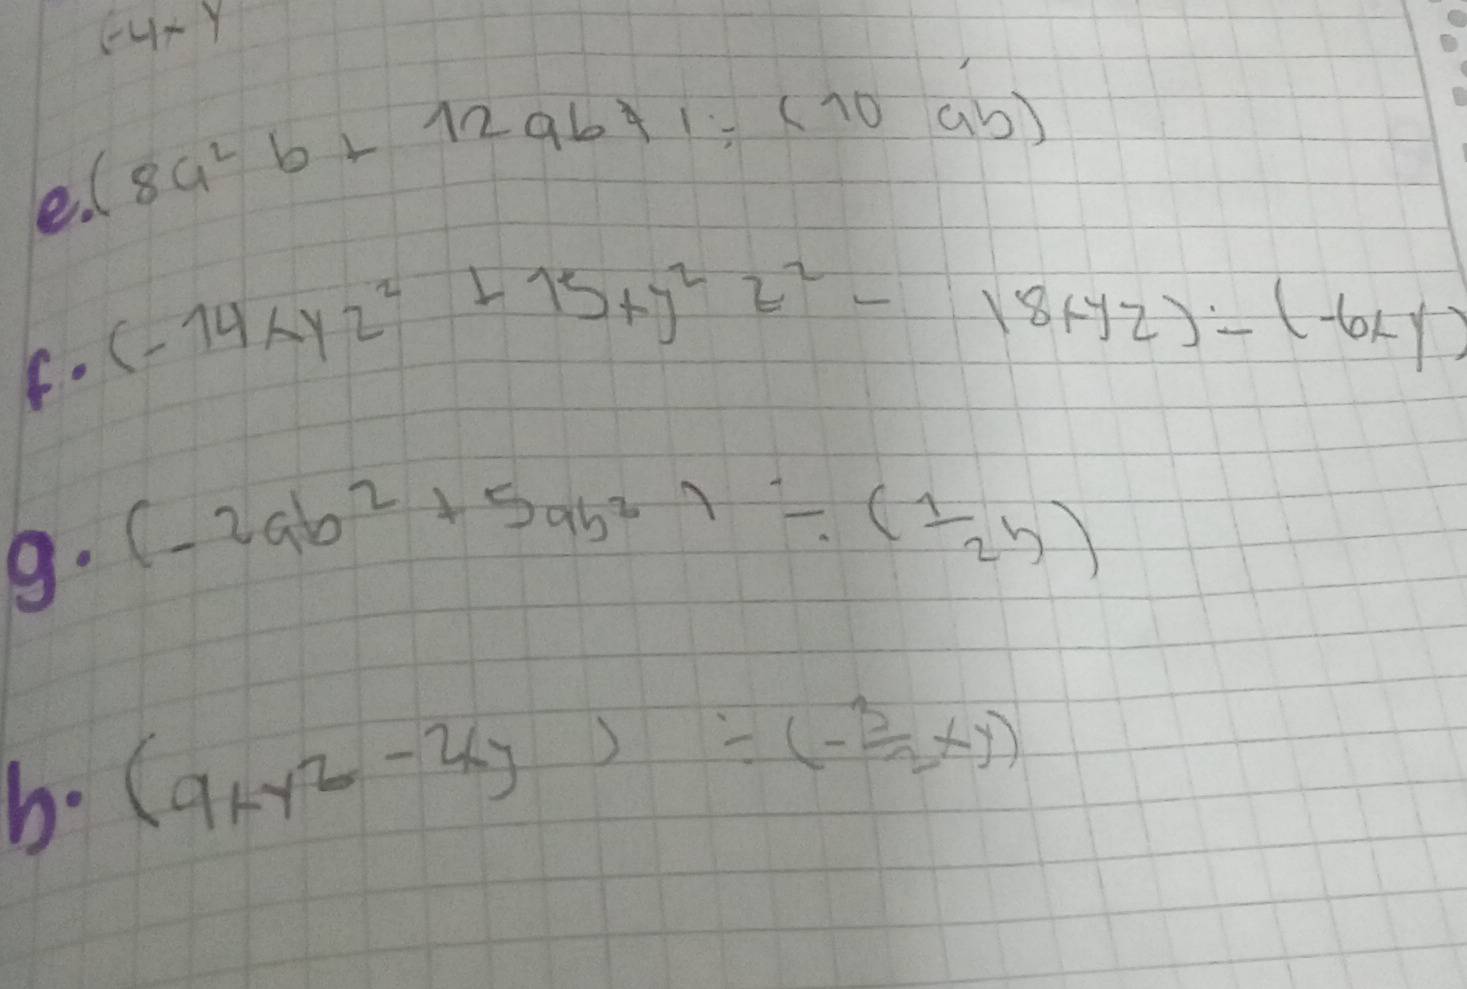 (-4x y
e. (8a² b + 12ab) ÷ (10 ab)
f. (-14xyz² + 15xy² z² - 18xyz) ÷ (-6xy)
g. (-2ab² + 5ab²) ÷ (1/2 b)
h. (9xy² - 2xy) ÷ (-3/2 xy)